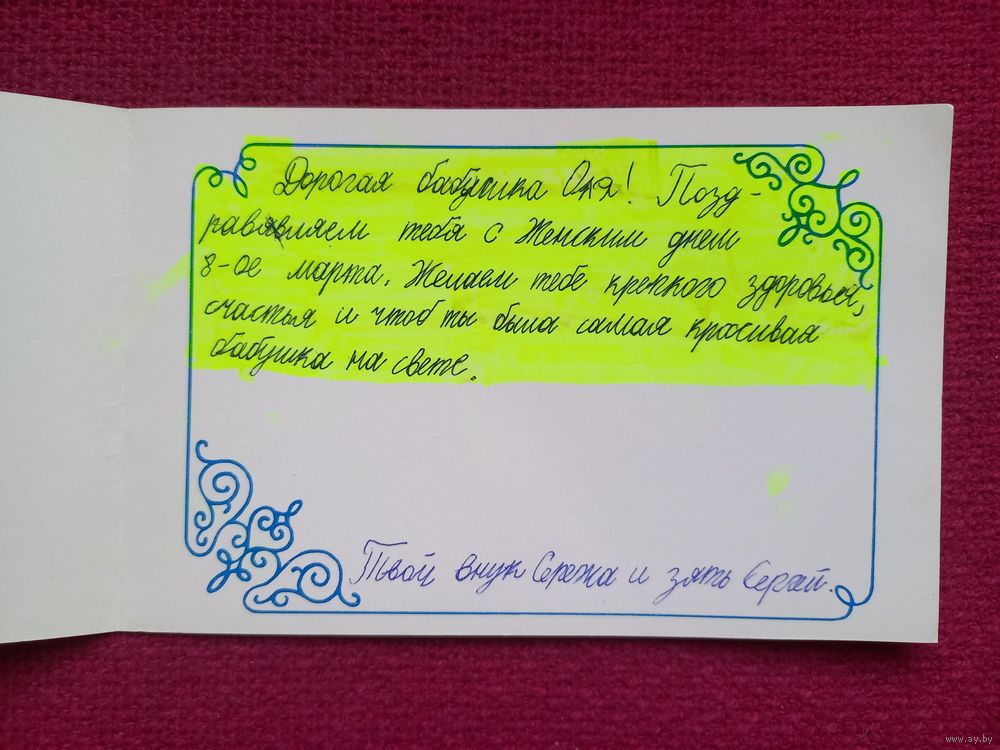 Дорогая бабушка Оля! Позд-
равляем тебя с Женским днем
8-ое марта. Желаем тебе крепкого здоровья,
счастья и чтоб ты была самая красивая
бабушка на свете.
Твой внук Сережа и зять Сергей.
www.ay.by